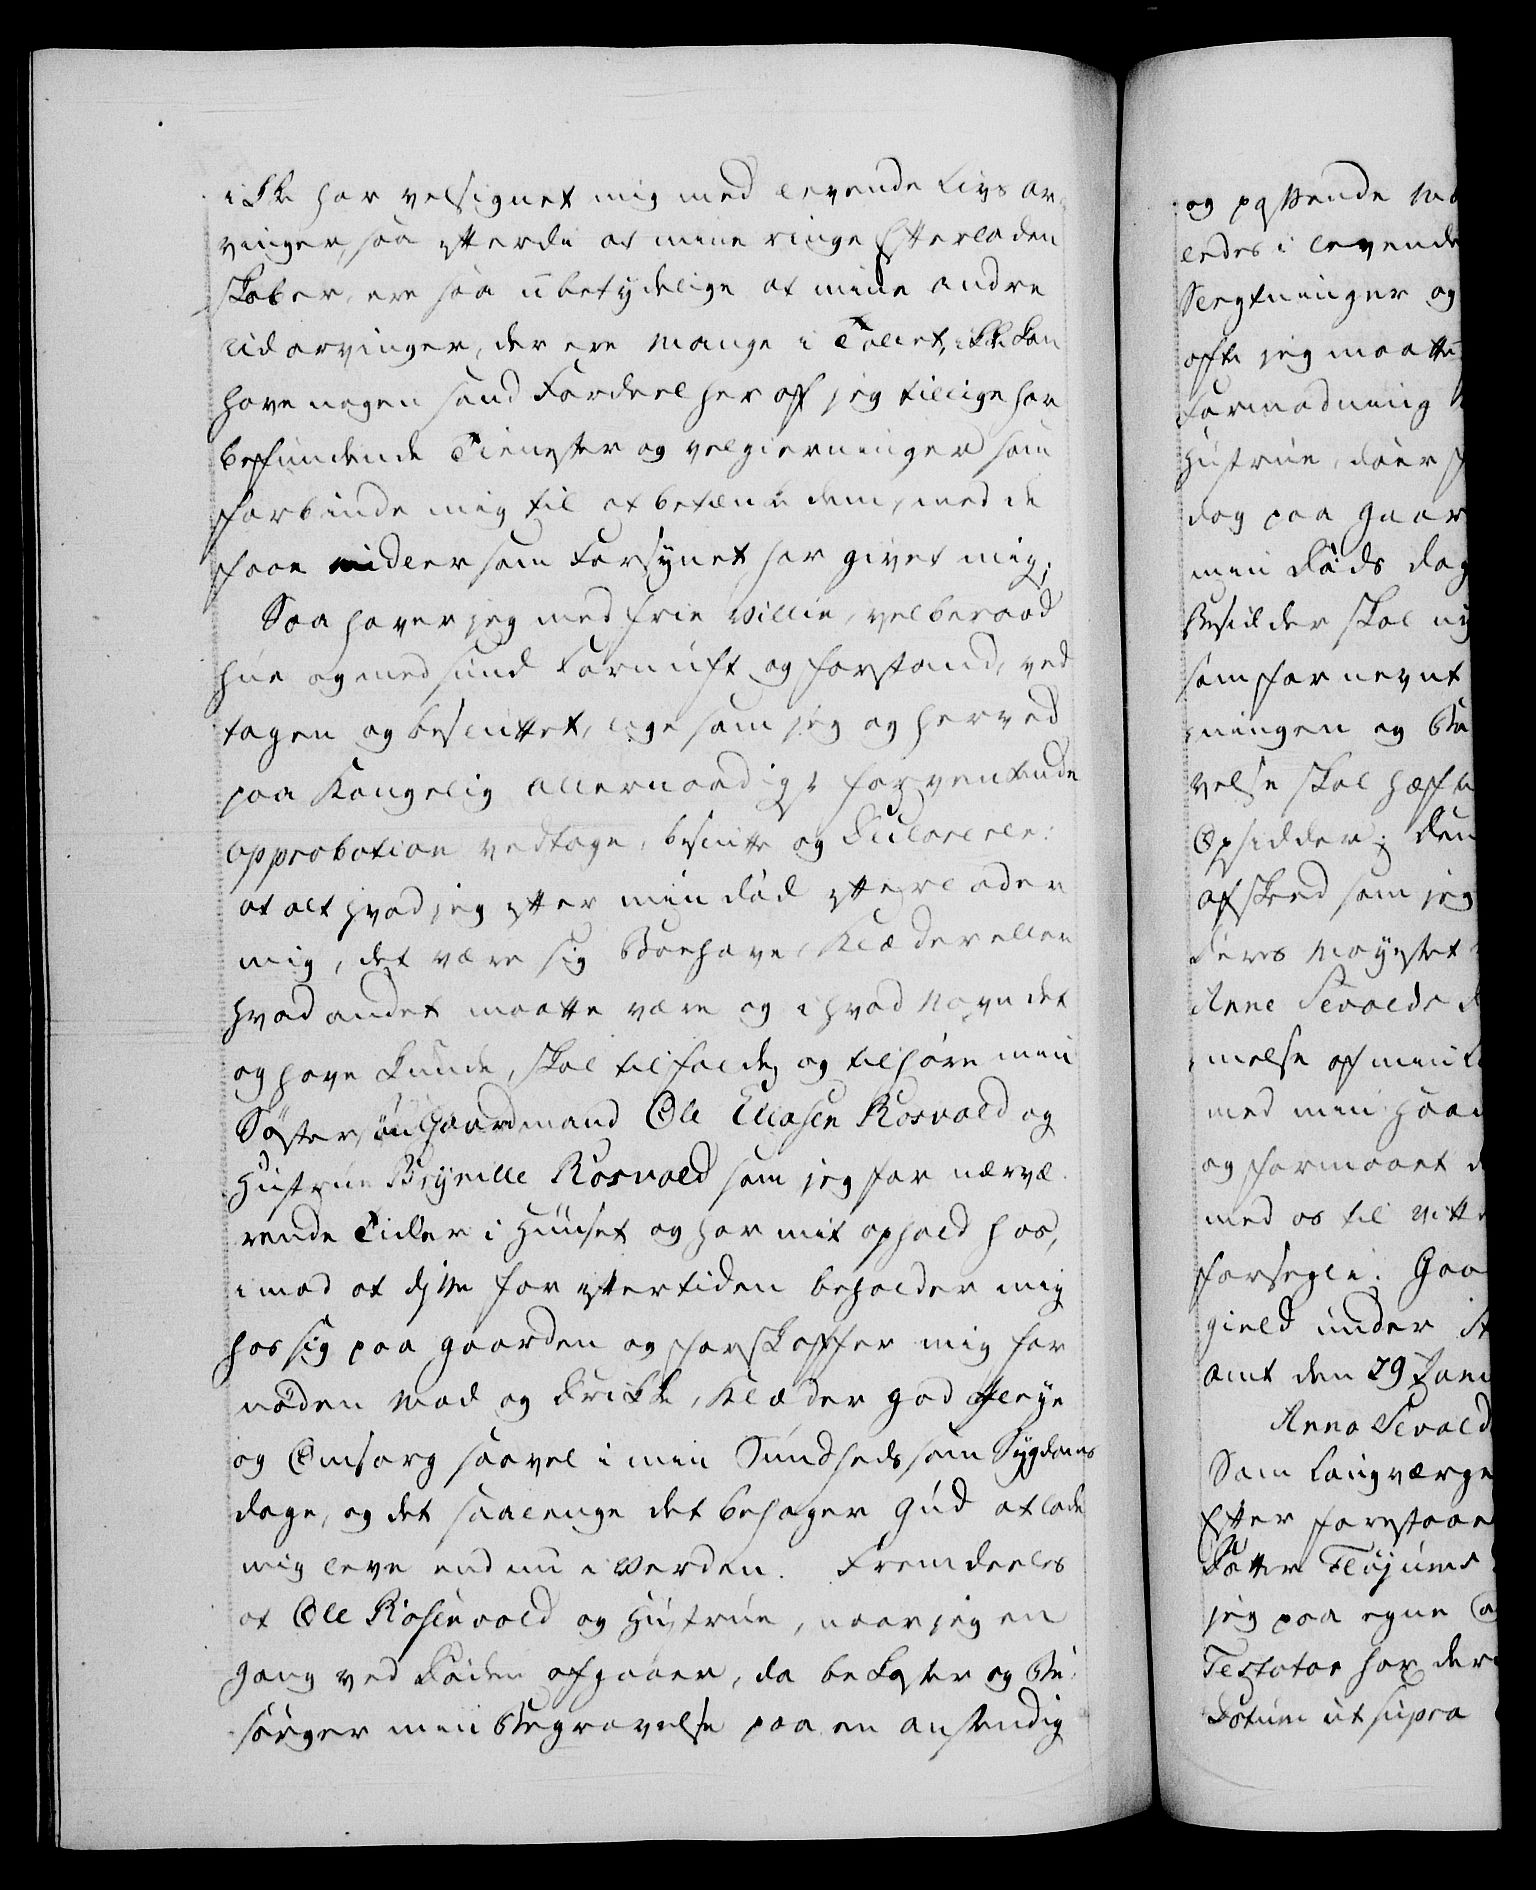 ikke har velsignet mig med levende Livs ar-
vinger, saa efterdi at mine ringe Efterladen
skaber, ere saa ubetydelige at mine andre
Udarvinger, der ere mange i Tallet, ikke kan
have nogen sand Fordeel her af jeg tillige har
befundende Tienester og velgierninger som
forbinde mig til at betænke dem, med de
faae midler som Forsynet har givet mig;
Saa haver jeg med frie Villie, velberaad
hue og med sund Fornuft og forstand, ved
tagen og besluttet, lige som jeg og herved
paa Kongelig allernaadigst forventende
approbation vedtage, beslutte og
at alt hvad jeg efter min død efterlader
mig, det være sig Boehave, Klæder eller
hvad andet maatte være og i hvad Navn det
og have kunde, skal tilfalde og tilhøre min
Søstersøn Gaardmand Ole Eliasen Rosvold og
Hustrue Rosvold som jeg for nærvæ-
rende Tider i Huuset og har mit ophold hos,
imod at disse for eftertiden beholder mig
hos sig paa gaarden og forskaffer mig for
nøden Mad og Drikke, Klæder god Pleye
og Omsorg saavel i min Sundheds som Sygdoms
dage, og det saalenge det behager Gud at lade
mig leve endnu i Verden. Fremdeeles
at Ole Rosenvold og Hustrue, naar jeg en
gang ved Døden afgaaer, da bekoster og be-
sørger min Begravelse paa en anstendig
og passende
ledes i levende
og
ofte jeg maatte
Formodning
Hustrue, døer
dag paa Gaar
min Døds dag
skal
som for nevnt
ningen og
velse skal hæfte
Opsidder; den
afskeed som jeg
Deres Mayestet
Anne Sevolds
melse af min
med min Haan
og formaaet
med os til
forsegle. Gaa
gield under
amt den 29 Janu
Anna Sevold
Som Laugværge
Efter forestaae

jeg paa egne
Testator har der
Datum ut supra